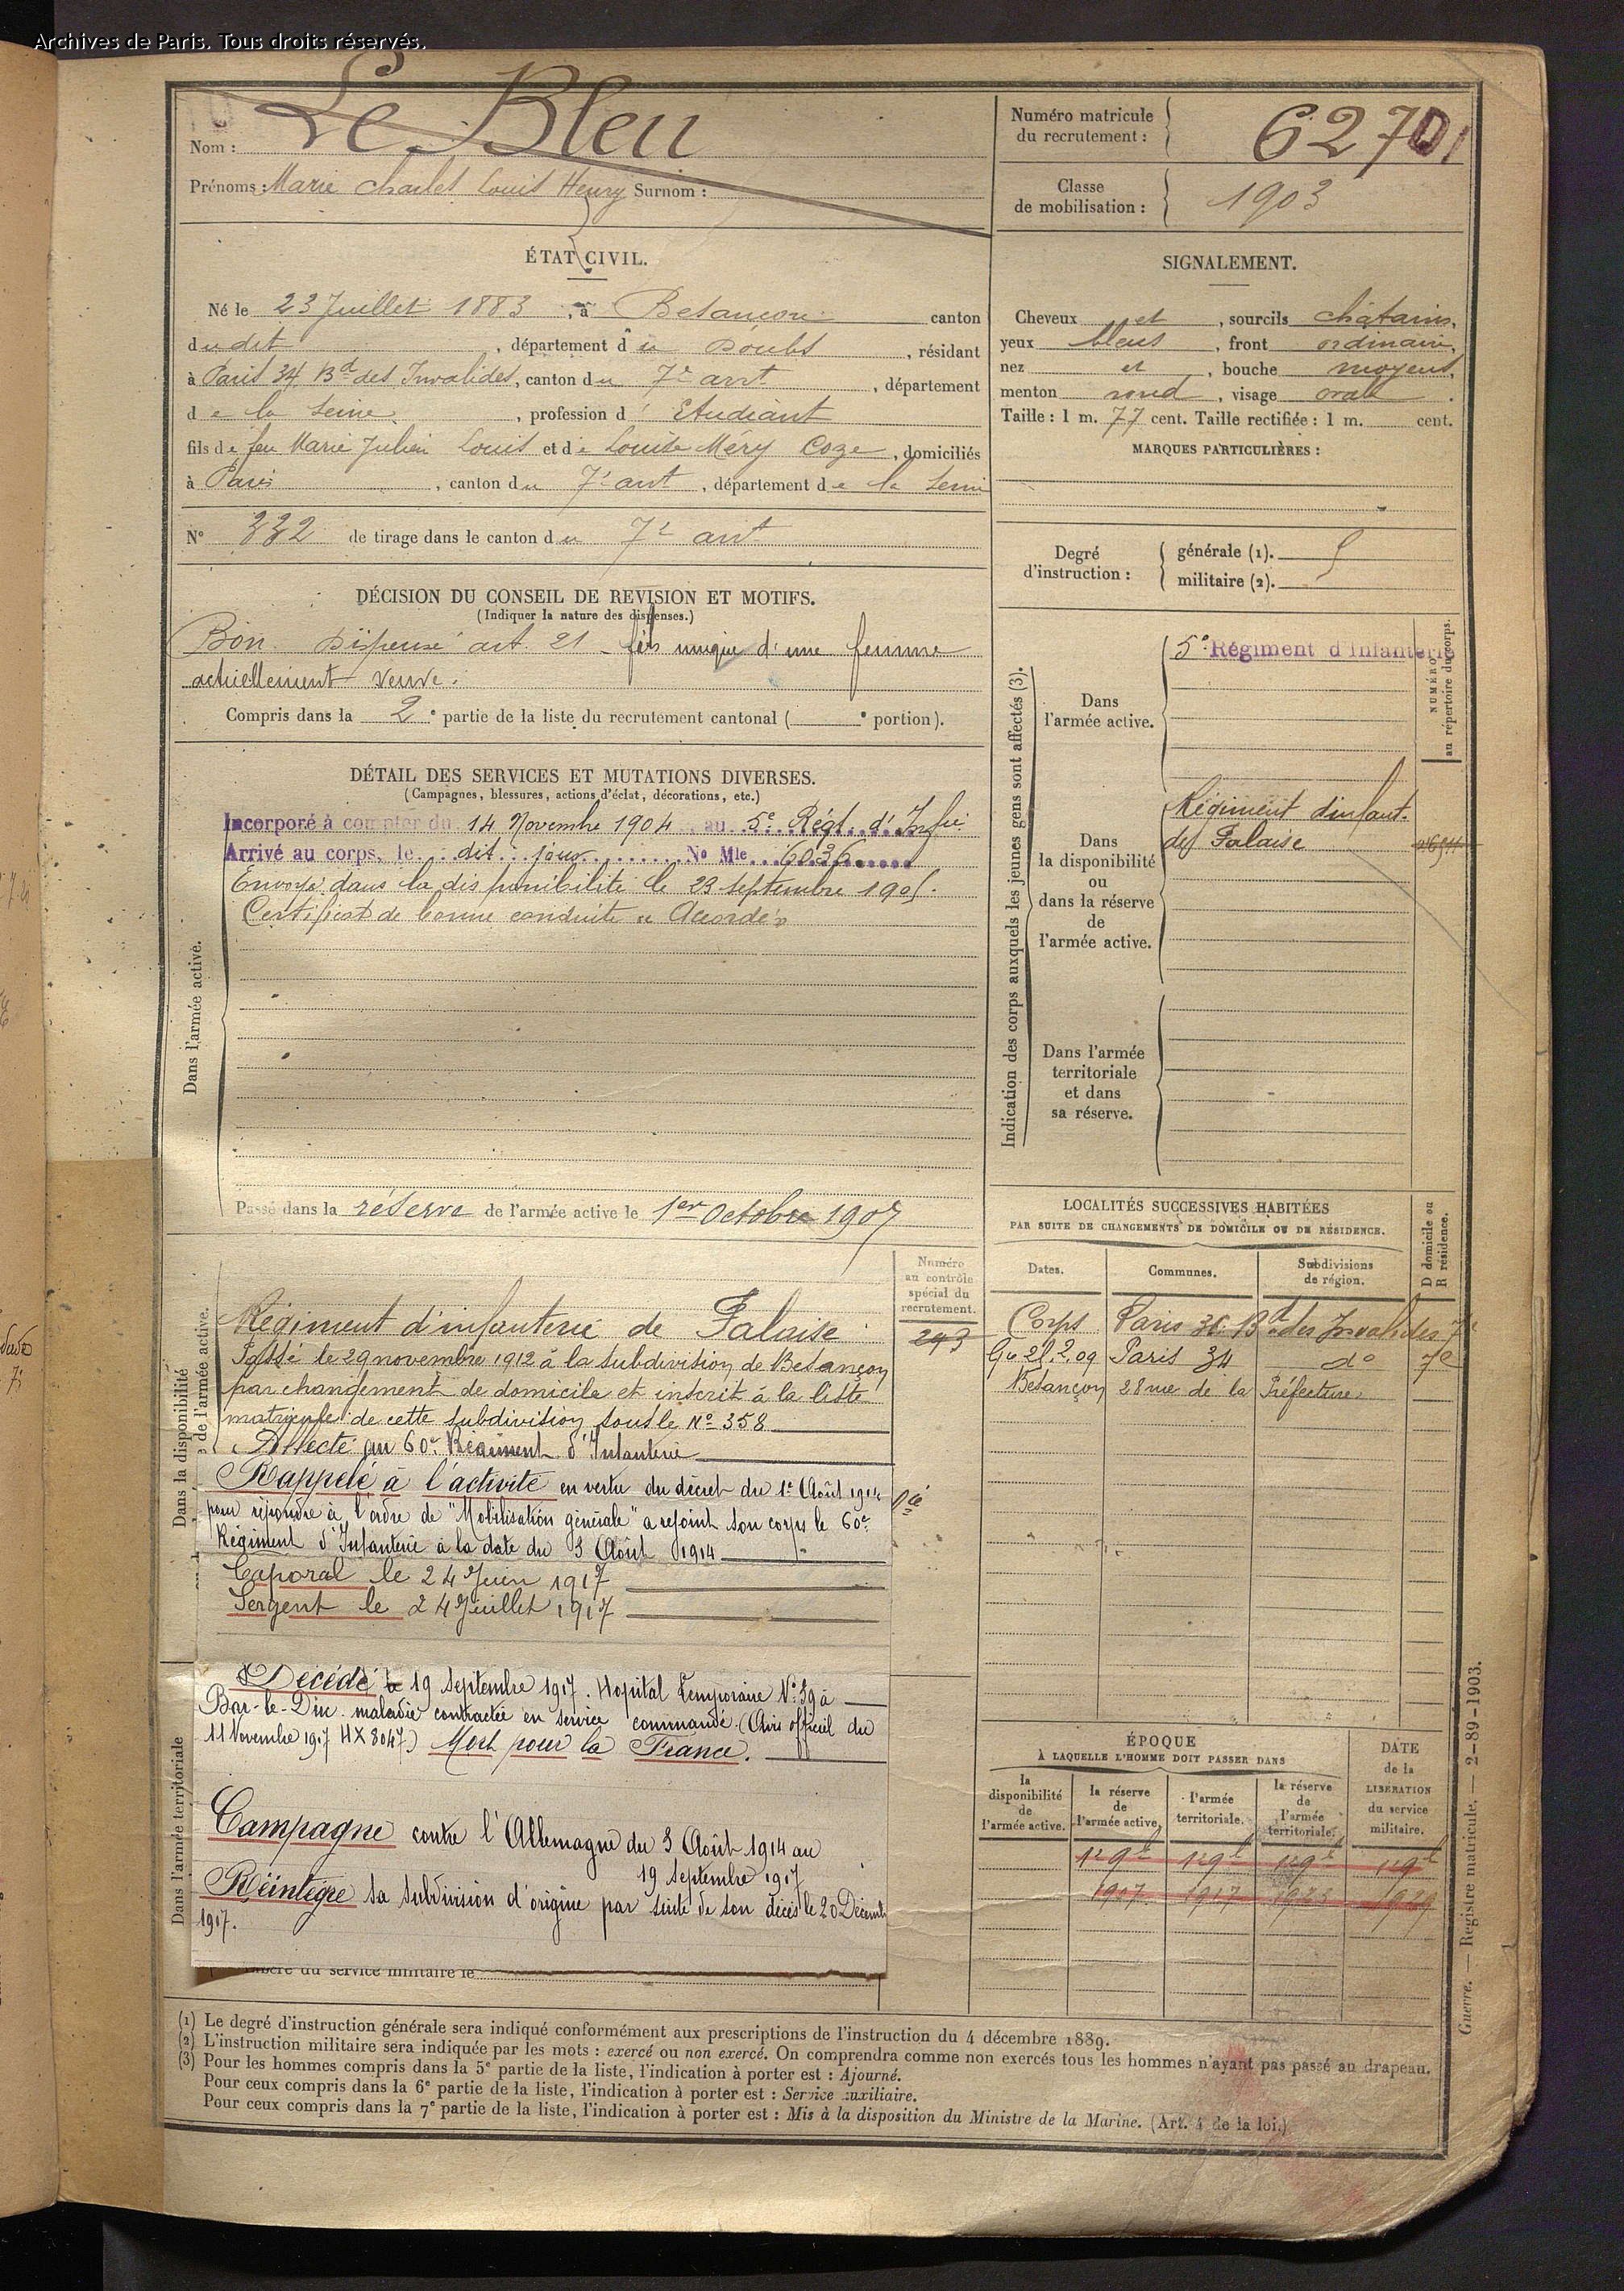 Archives de Paris. Tous droits réservés.
Nom : Le Bleu
Prénoms : Marie Charles Louis Henry Surnom :
Numéro matricule du recrutement : 6270
Classe de mobilisation : 1903
ÉTAT CIVIL.
Né le 23 Juillet 1883, à Besançon canton
dudit, département du Doubs, résidant
à Paris 34 Bd des Invalides, canton du 7e arrt, département
de la Seine, profession d'Etudiant
fils de feu Marie Julien Louis et de Louise Méry Coze, domiciliés
à Paris, canton du 7e arrt, département de la Seine
N° 332 de tirage dans le canton du 7e arrt
SIGNALEMENT.
Cheveux et, sourcils châtains,
yeux bleus, front ordinaire,
nez et, bouche moyens,
menton rond, visage ovale.
Taille : 1 m. 77 cent. Taille rectifiée : 1 m. cent.
MARQUES PARTICULIÈRES :
Degré d'instruction :
générale (1).
militaire (2).
DÉCISION DU CONSEIL DE REVISION ET MOTIFS.
(Indiquer la nature des dispenses.)
Bon. Dispensé art. 21 - fils unique d'une femme
actuellement veuve.
Compris dans la 2e partie de la liste du recrutement cantonal ( e portion).
DÉTAIL DES SERVICES ET MUTATIONS DIVERSES.
(Campagnes, blessures, actions d'éclat, décorations, etc.)
Dans l'armée active.
Incorporé à compter du 14 Novembre 1904 au 5e Régt d'Infie
Arrivé au corps, le dit jour N° Mle 6036
Envoyé dans la disponibilité le 23 septembre 1905.
Certificat de bonne conduite "Accordé"
Passé dans la réserve de l'armée active le 1er Octobre 1907
Indication des corps auxquels les jeunes gens sont affectés (3).
NUMÉRO au répertoire du corps.
Dans l'armée active.
5e Régiment d'Infanterie
Dans la disponibilité ou dans la réserve de l'armée active.
Régiment d'infant.
de Falaise
Dans l'armée territoriale et dans sa réserve.
Dans la disponibilité
de l'armée active.
Numéro au contrôle spécial du recrutement.
293
Régiment d'infanterie de Falaise
Passé le 29 novembre 1912 à la subdivision de Besançon
par changement de domicile et inscrit à la liste
matricule de cette subdivision sous le N° 358
Affecté au 60e Régiment d'Infanterie
Rappelé à l'activité en vertu du décret du 1er Août 1914
pour répondre à l'ordre de "Mobilisation générale" a rejoint son corps le 60e
Régiment d'Infanterie à la date du 3 Août 1914
Caporal le 24 Juin 1917
Sergent le 24 Juillet 1917
Dans l'armée territoriale
Décédé le 19 Septembre 1917. Hopital Temporaire N° 39 à
Bar-le-Duc. maladie contractée en service commandé (Avis officiel du
11 Novembre 1917 HX 8047) Mort pour la France.
Campagne contre l'Allemagne du 3 Août 1914 au
19 Septembre 1917
Réintègre sa subdivision d'origine par suite de son décès le 20 Décemb
1917.
du service militaire le
LOCALITÉS SUCCESSIVES HABITÉES
PAR SUITE DE CHANGEMENTS DE DOMICILE OU DE RÉSIDENCE.
Dates. Communes. Subdivisions de région. D domicile ou R résidence.
Corps Paris 36 Bd des Invalides 7e
21.2.09 Paris 34 do 7e
Besançon 28 rue de la Préfecture
ÉPOQUE
À LAQUELLE L'HOMME DOIT PASSER DANS
la disponibilité de l'armée active. la réserve de l'armée active. l'armée territoriale. la réserve de l'armée territoriale. DATE de la LIBÉRATION du service militaire.
1907 1917 1923 1929
Guerre. — Registre matricule. — 2-89-1903.
(1) Le degré d'instruction générale sera indiqué conformément aux prescriptions de l'instruction du 4 décembre 1889.
(2) L'instruction militaire sera indiquée par les mots : exercé ou non exercé. On comprendra comme non exercés tous les hommes n'ayant pas passé au drapeau.
(3) Pour les hommes compris dans la 5e partie de la liste, l'indication à porter est : Ajourné.
Pour ceux compris dans la 6e partie de la liste, l'indication à porter est : Service auxiliaire.
Pour ceux compris dans la 7e partie de la liste, l'indication à porter est : Mis à la disposition du Ministre de la Marine. (Art. 4 de la loi.)